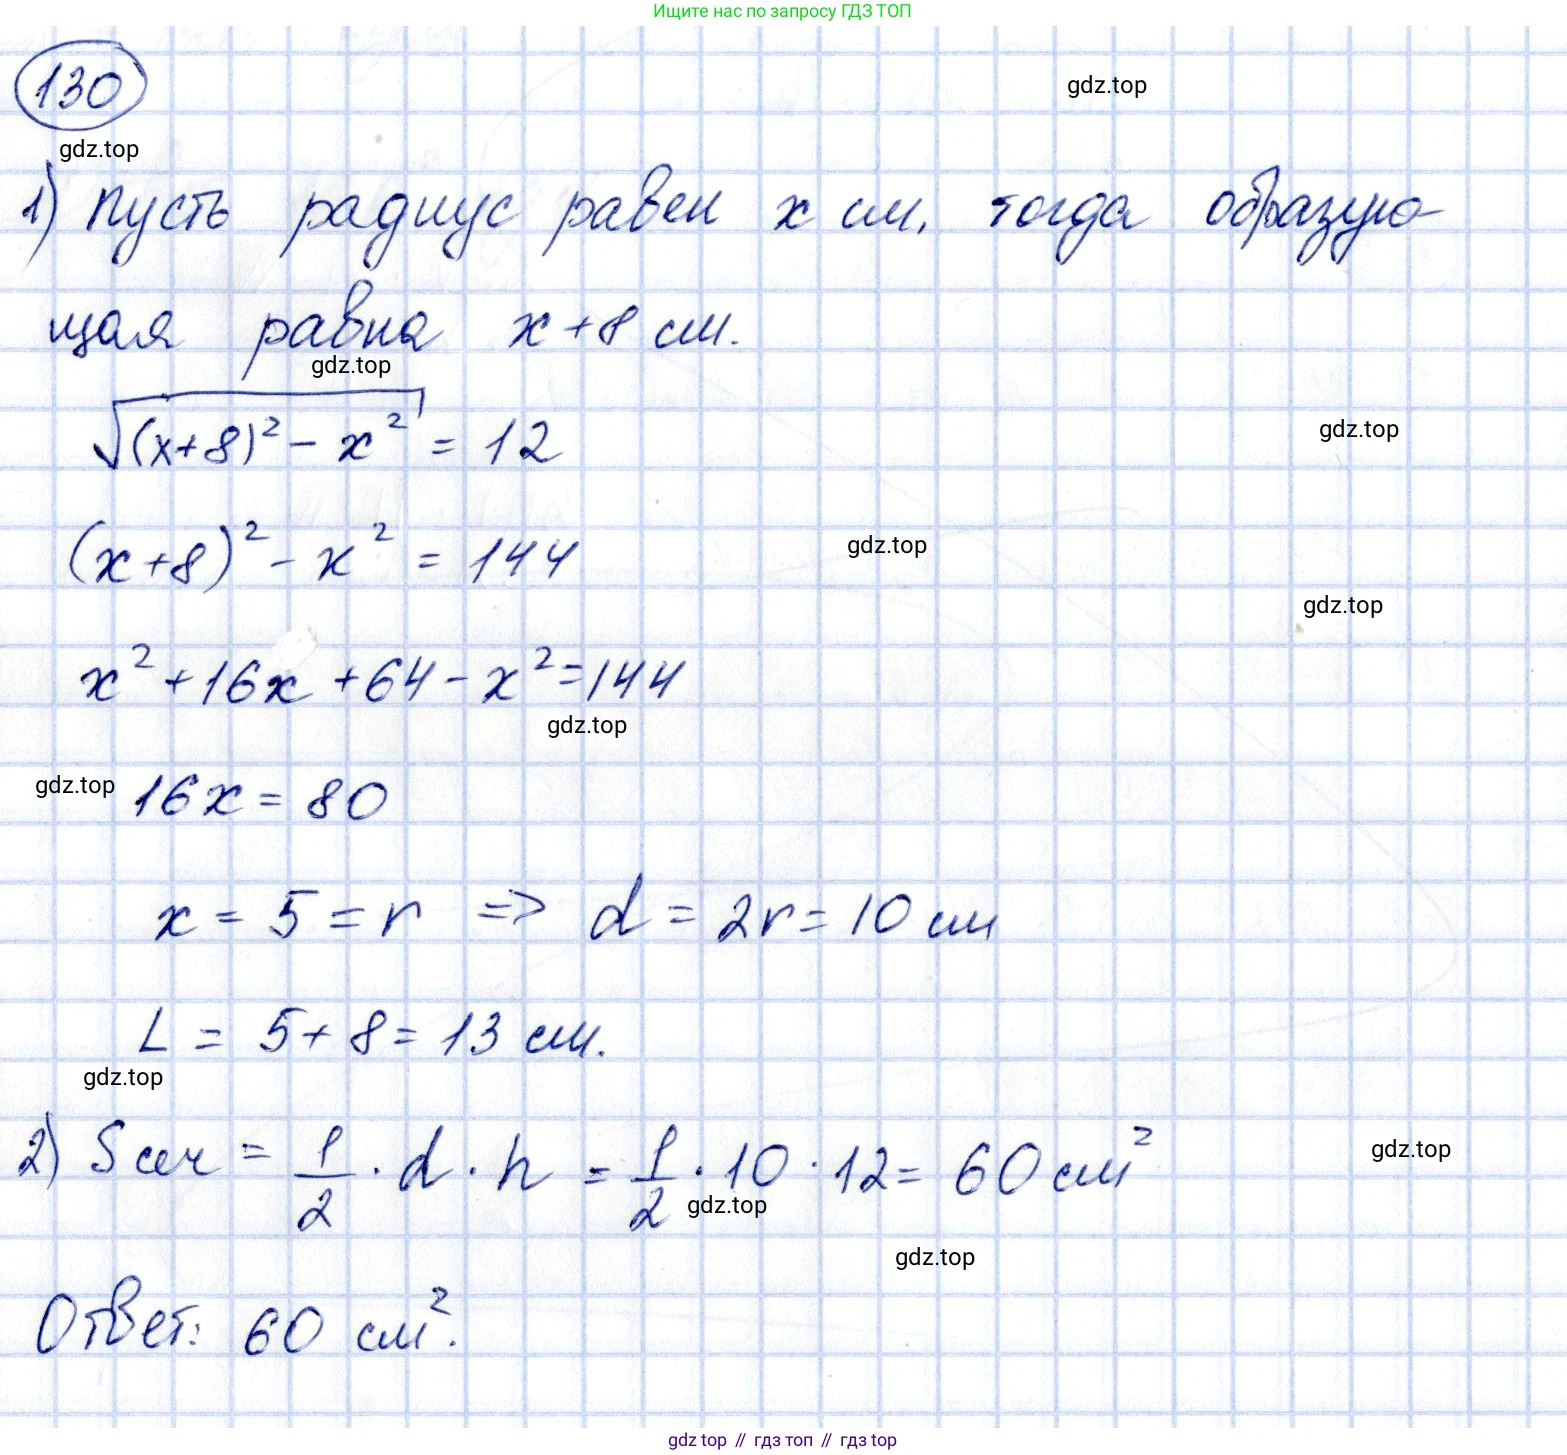 Ищите нас по запросу ГДЗ ТОП
130
gdz.top
gdz.top
1) Пусть радиус равен x см, тогда образую-
щая равна x+8 см.
gdz.top
√((x+8)² - x²) = 12
gdz.top
(x+8)² - x² = 144
gdz.top
gdz.top
x² + 16x + 64 - x² = 144
gdz.top
gdz.top
16x = 80
x = 5 = r => d = 2r = 10 см
L = 5 + 8 = 13 см.
gdz.top
2) Sсеч = 1/2 · d · h = 1/2 · 10 · 12 = 60 см²
gdz.top
gdz.top
gdz.top
Ответ: 60 см².
gdz top // гдз топ // гдз top